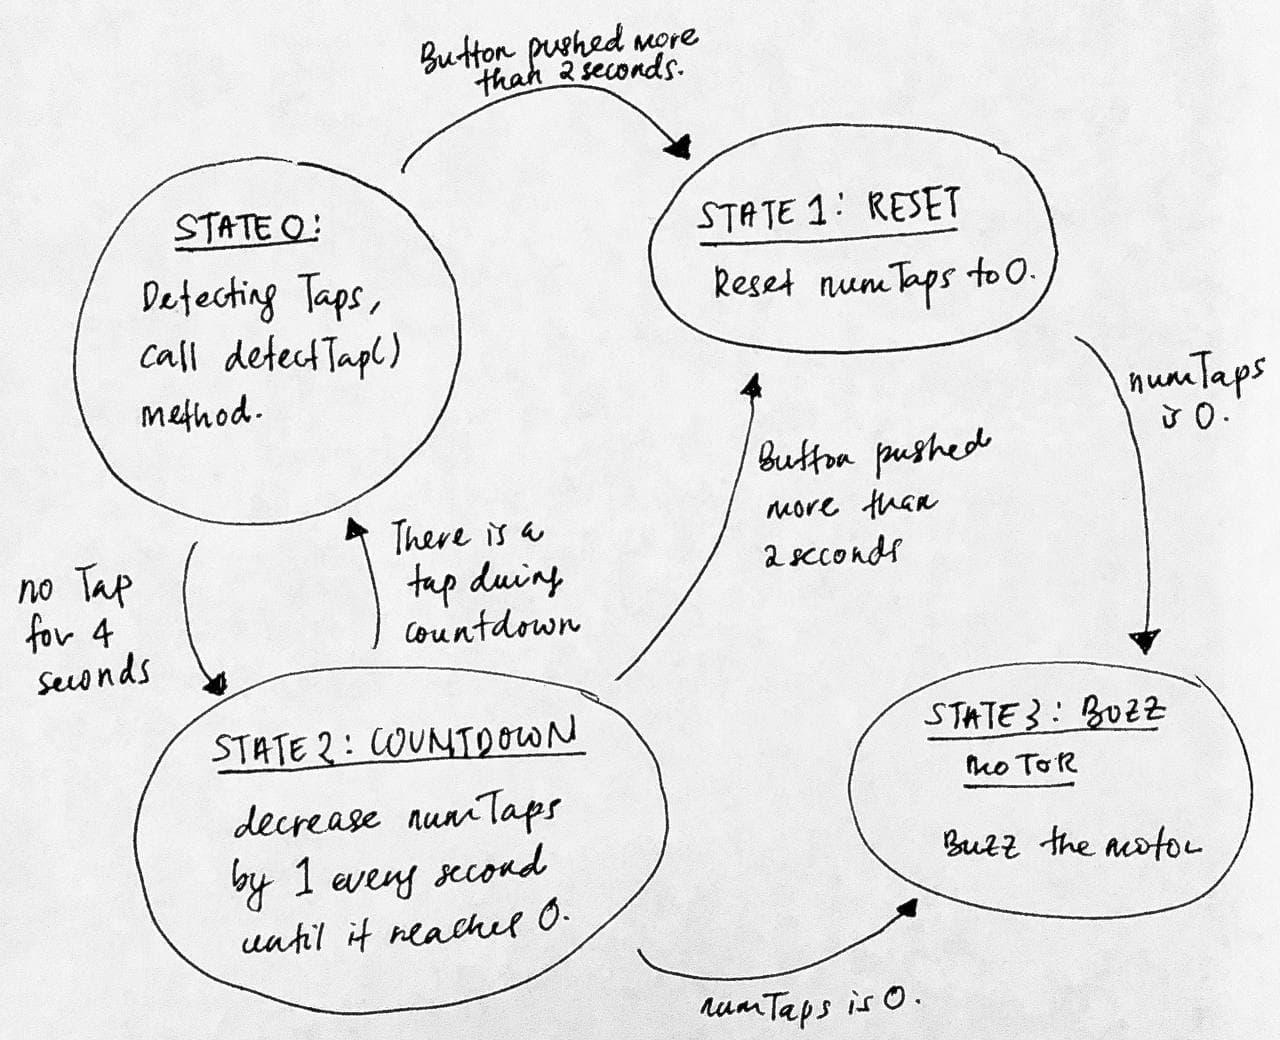 Button pushed more
than 2 seconds.
STATE 0:
Detecting Taps,
call detectTap()
method.
STATE 1: RESET
Reset numTaps to 0.
numTaps
is 0.
Button pushed
more than
2 seconds
There is a
tap during
countdown
no Tap
for 4
seconds
STATE 2: COUNTDOWN
decrease numTaps
by 1 every second
until it reaches 0.
STATE 3: BUZZ
MOTOR
Buzz the motor
numTaps is 0.